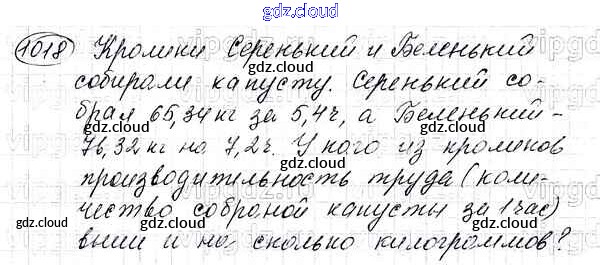 gdz.cloud
1018 Кролики Серенький и Беленький
собирали капусту. Серенький со-
брал 65,34кг за 5,4ч, а Беленький -
76,32 кг на 7,2ч. У кого из кроликов
производительность труда (коли-
чество собраной капусты за 1 час)
выше и на сколько килограммов?
gdz.cloud